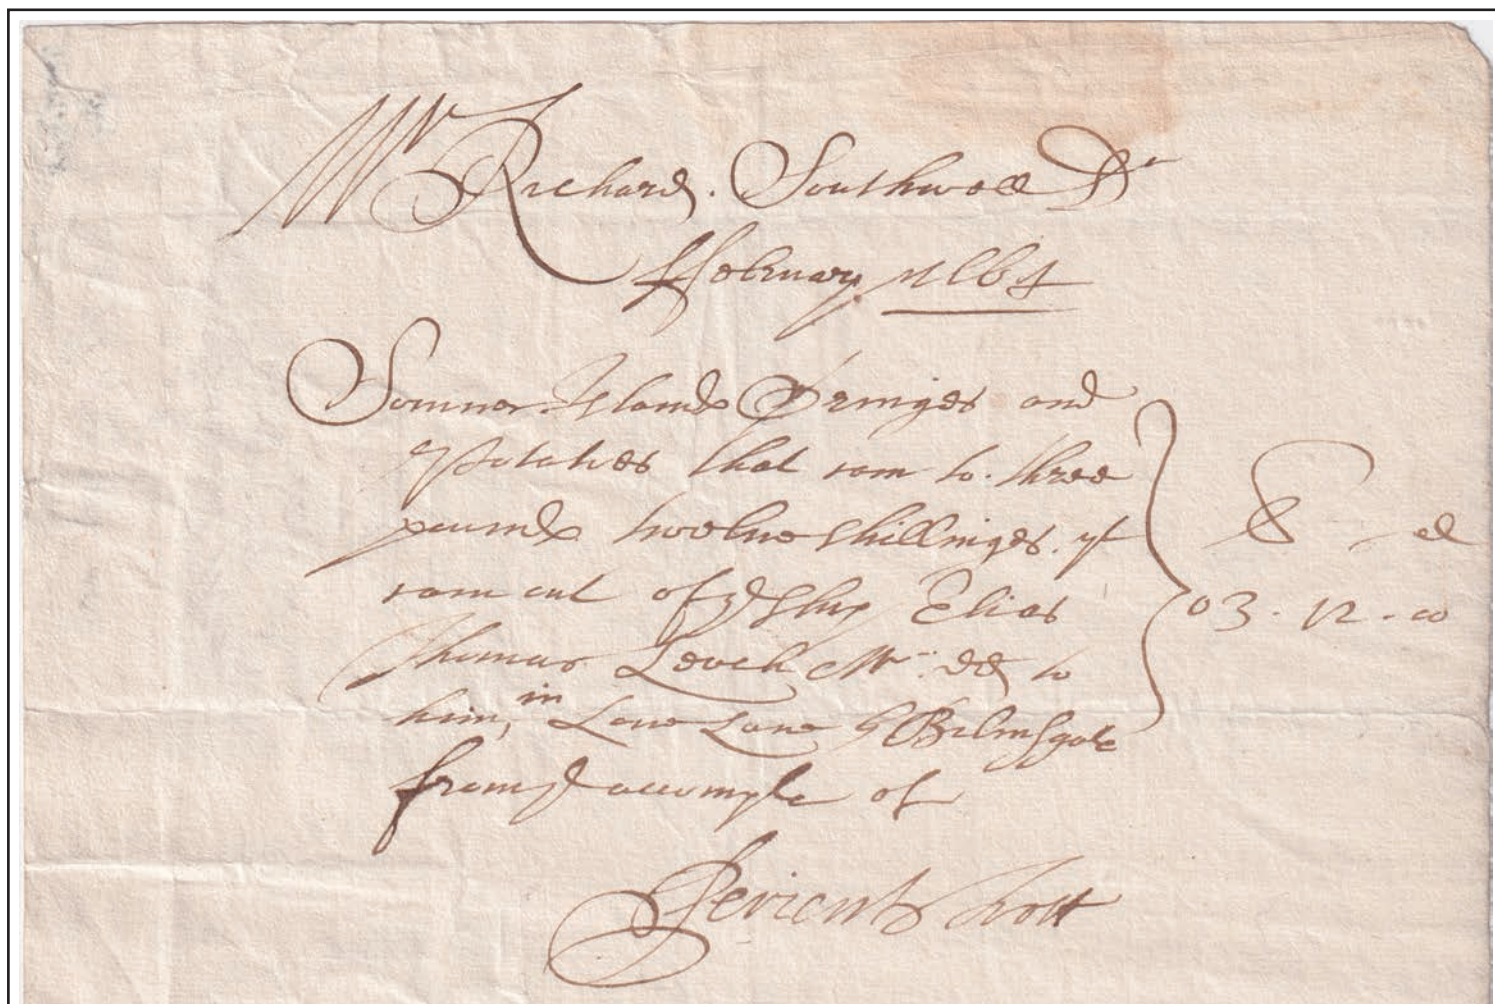 Mr Richard Southwell Dr
ffebruary 1664
Sommer Islands Oringes and
potatoes that cam to three
pounds twelve shillinges yt
cam out of ye ship Elias
Thomas Leech Mr dd to
him, in Love Lane by Bilinsgate
from ye accompte of
Perient Trott
£ d
03 - 12 - 00